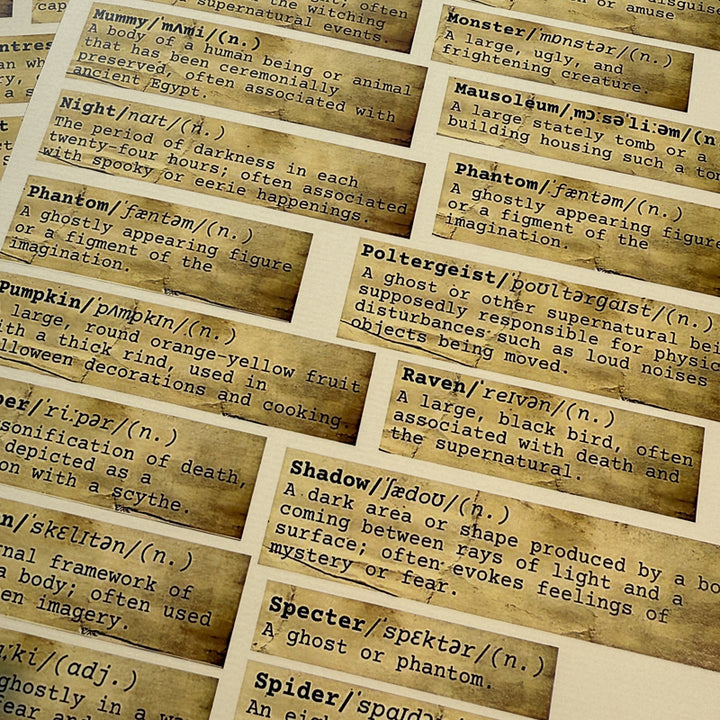 the witching
supernatural events.
Mummy/ˈmʌmi/(n.)
A body of a human being or animal
that has been ceremonially
preserved, often associated with
ancient Egypt.
Night/naɪt/(n.)
The period of darkness in each
twenty-four hours; often associated
with spooky or eerie happenings.
Phantom/ˈfæntəm/(n.)
A ghostly appearing figure
or a figment of the
imagination.
Pumpkin/ˈpʌmpkɪn/(n.)
large, round orange-yellow fruit
with a thick rind, used in
decorations and cooking.
/ˈriːpər/(n.)
of death,
depicted as a
with a scythe.
/ˈskɛlɪtən/(n.)
framework of
a body; often used
imagery.
(adj.)
ghostly in a
or amuse
Monster/ˈmɒnstər/(n.)
A large, ugly, and
frightening creature.
Mausoleum/ˌmɔːsəˈliːəm/(n
A large stately tomb or a
building housing such a
Phantom/ˈfæntəm/(n.)
A ghostly appearing figure
or a figment of the
imagination.
Poltergeist/ˈpoʊltərɡaɪst/(n.)
A ghost or other supernatural
supposedly responsible for
disturbances such as loud noises
objects being moved.
Raven/ˈreɪvən/(n.)
A large, black bird, often
associated with death and
the supernatural.
Shadow/ˈʃædoʊ/(n.)
A dark area or shape produced by a
coming between rays of light and a
surface; often evokes feelings of
mystery or fear.
Specter/ˈspɛktər/(n.)
A ghost or phantom.
Spider/
An